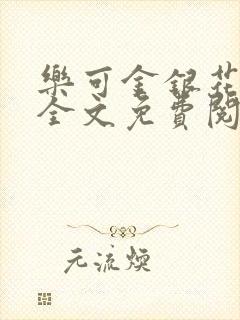 樂可金銀花
全文免費閱
元流煐